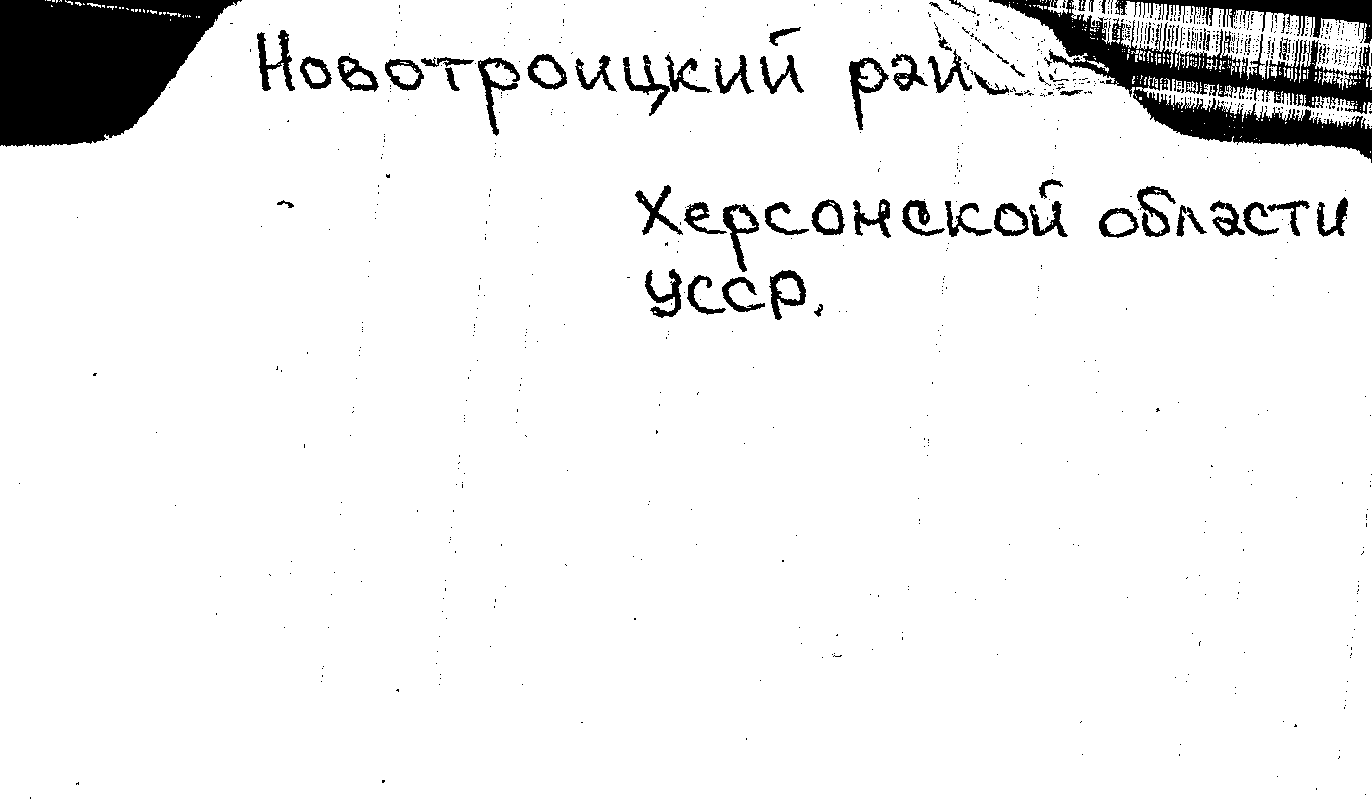 Новотроицкий рай
Херсонской области
УССР.